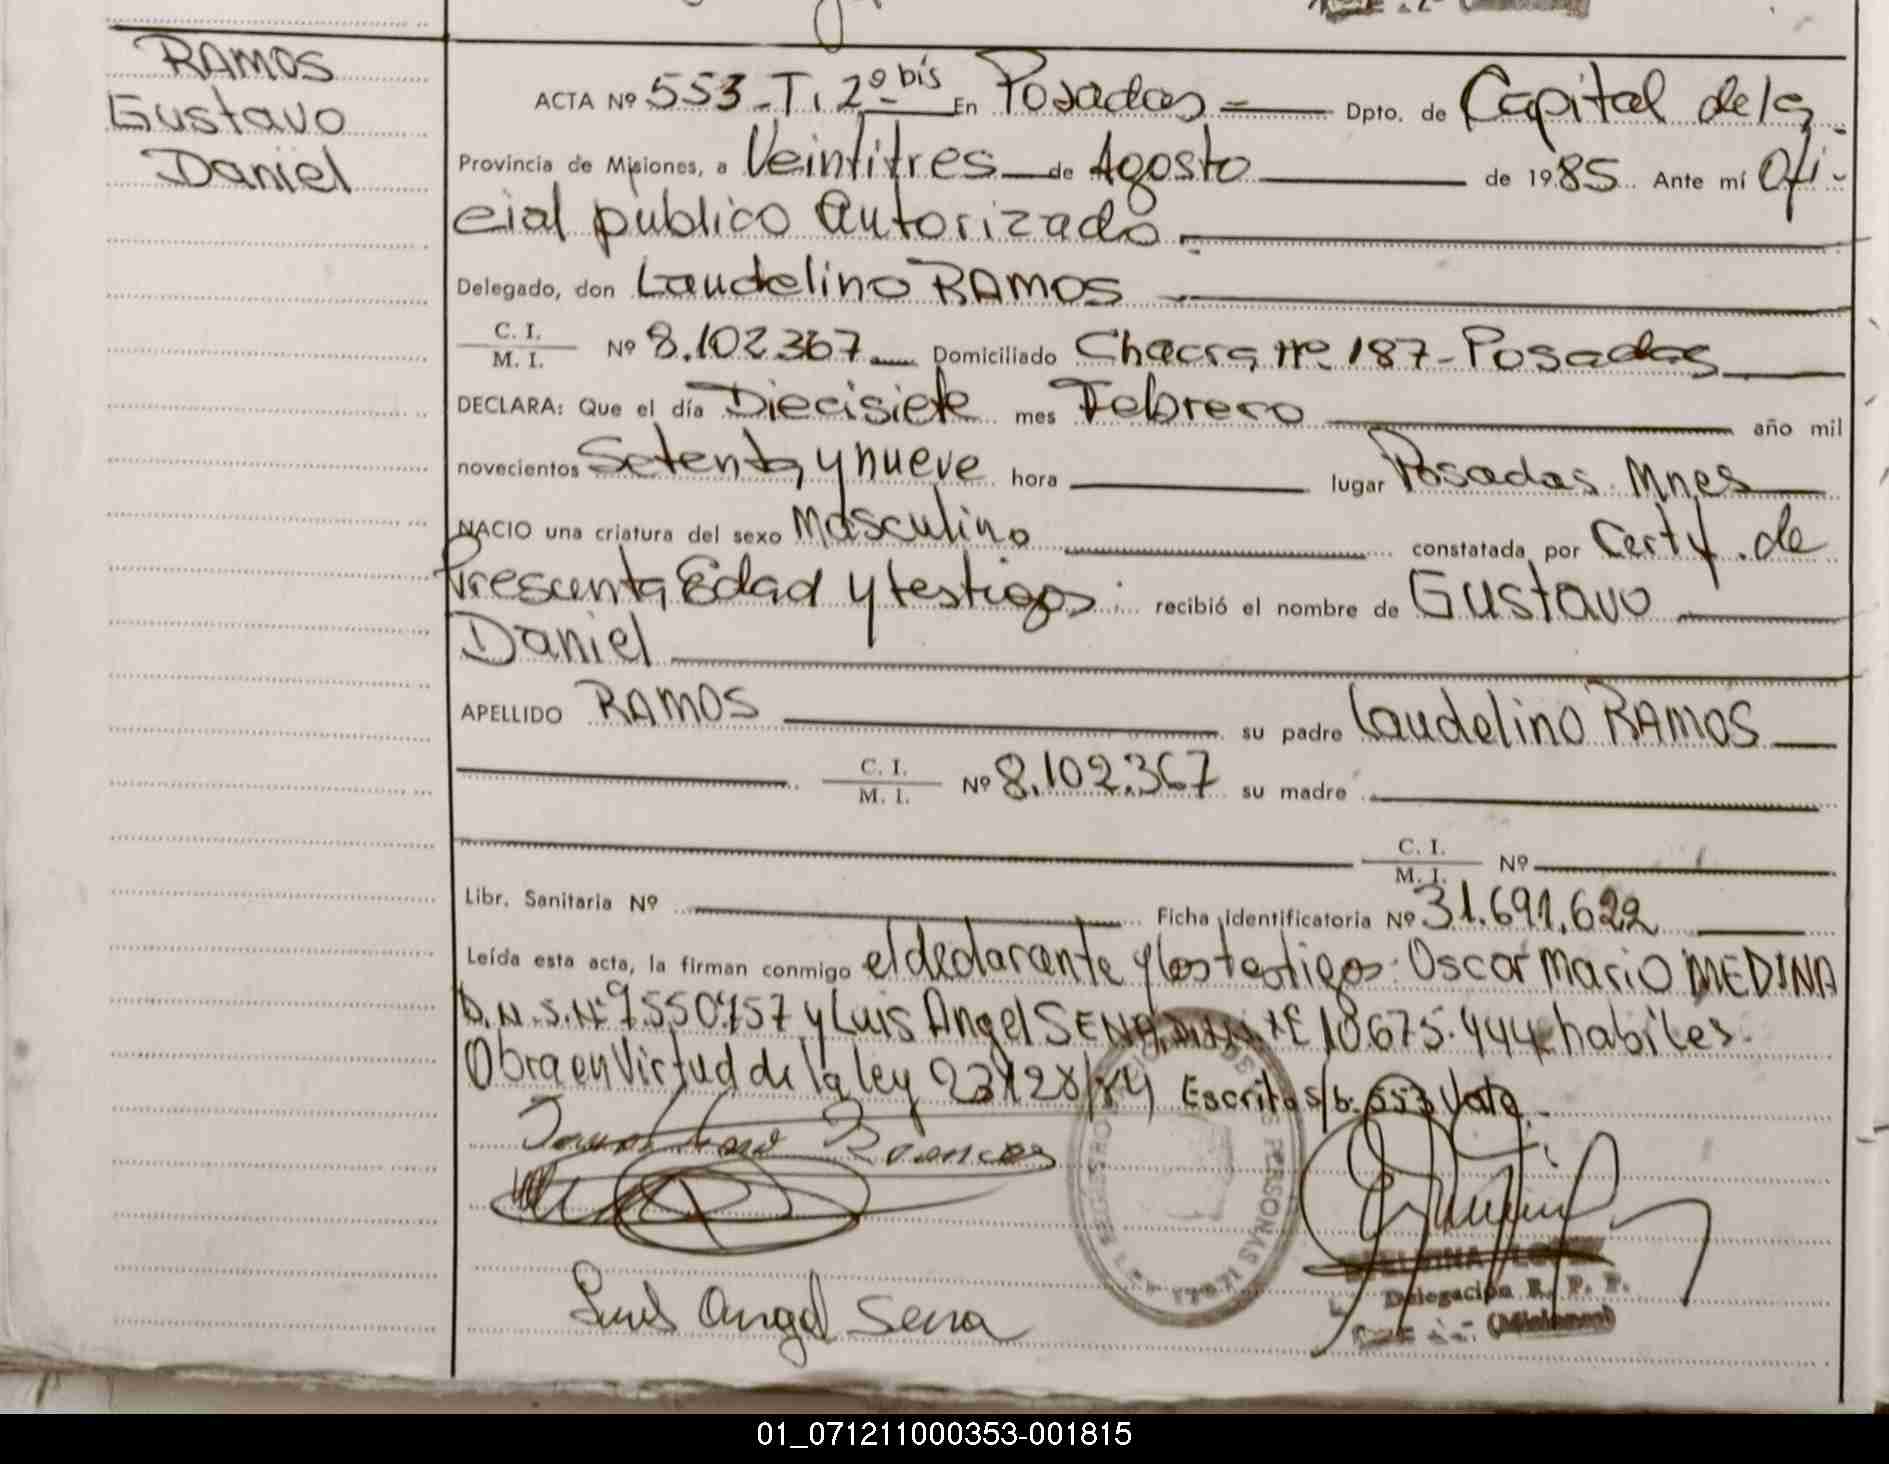 RAMOS
Gustavo
Daniel
ACTA Nº 553-T. 2º bis En Posadas Dpto. de Capital de la
Provincia de Misiones, a Veintitres de Agosto de 1985 Ante mí Ofi-
cial publico Autorizado.
Delegado, don Laudelino RAMOS
C. I.
M. I. Nº 8.102.367 Domiciliado Chacra nº 187 - Posadas
DECLARA: Que el día Diecisiete mes Febrero año mil
novecientos Setenta y nueve hora lugar Posadas. Mnes
NACIO una criatura del sexo Masculino constatada por Certf. de
Presunta Edad y testigos recibió el nombre de Gustavo
Daniel
APELLIDO RAMOS su padre Laudelino RAMOS
C. I.
M. I. Nº 8.102.367 su madre
C. I.
M. I. Nº
Libr. Sanitaria Nº Ficha identificatoria Nº 31.691.622
Leída esta acta, la firman conmigo el declarante y los testigos: Oscar Mario MEDINA
y Luis Angel SENA habiles.
Obra en Virtud de la ley 23128/84 Escrito s/b: 553 Vale.
Luis Angel Sena
REGISTRO DE PERSONAS
Delegación R. P. P.
(Misiones)
01_071211000353-001815